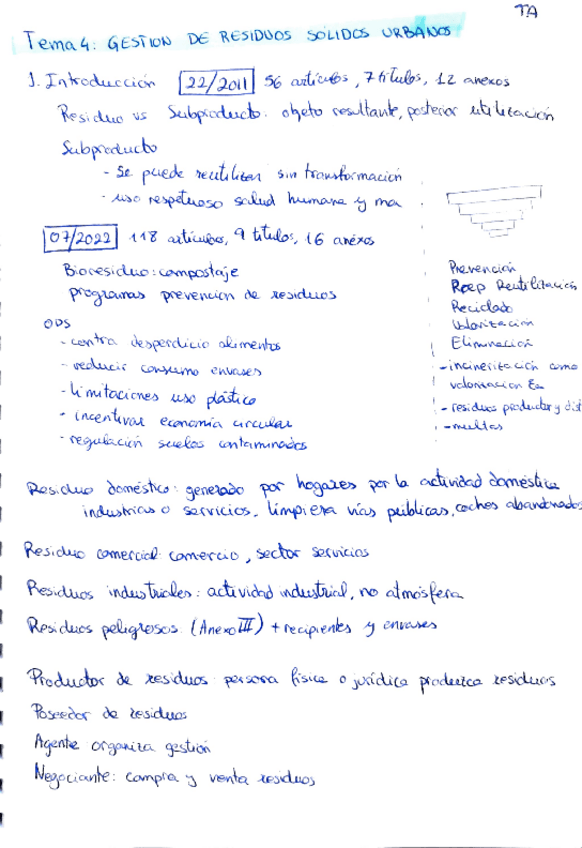 TA
Tema 4: GESTION DE RESIDUOS SÓLIDOS URBANOS
1. Introducción 22/2011 56 artículos, 7 títulos, 12 anexos
Residuo vs Subproducto: objeto resultante, posterior utilización
Subproducto
- Se puede reutilizar sin transformación
- uso respetuoso salud humana y ma
07/2022 118 artículos, 9 títulos, 16 anexos
Bioresiduo: compostaje
programas prevencion de residuos
ODS
- contra desperdicio alimentos
- reducir consumo envases
- limitaciones uso plástico
- incentivar economía circular
- regulación suelos contaminados
Prevención
Reutilización
Reciclado
Valorización
Eliminación
- incineritación como
valorización En
- residuos productor y dist
- multas
Residuo doméstico: generado por hogares por la actividad doméstica
industrias o servicios. limpieza vías públicas, coches abandonados
Residuo comercial: comercio, sector servicios
Residuos industriales: actividad industrial, no atmósfera
Residuos peligrosos (Anexo III) + recipientes y envases
Productor de residuos: persona física o jurídica produzca residuos
Poseedor de residuos
Agente organiza gestión
Negociante: compra y venta residuos